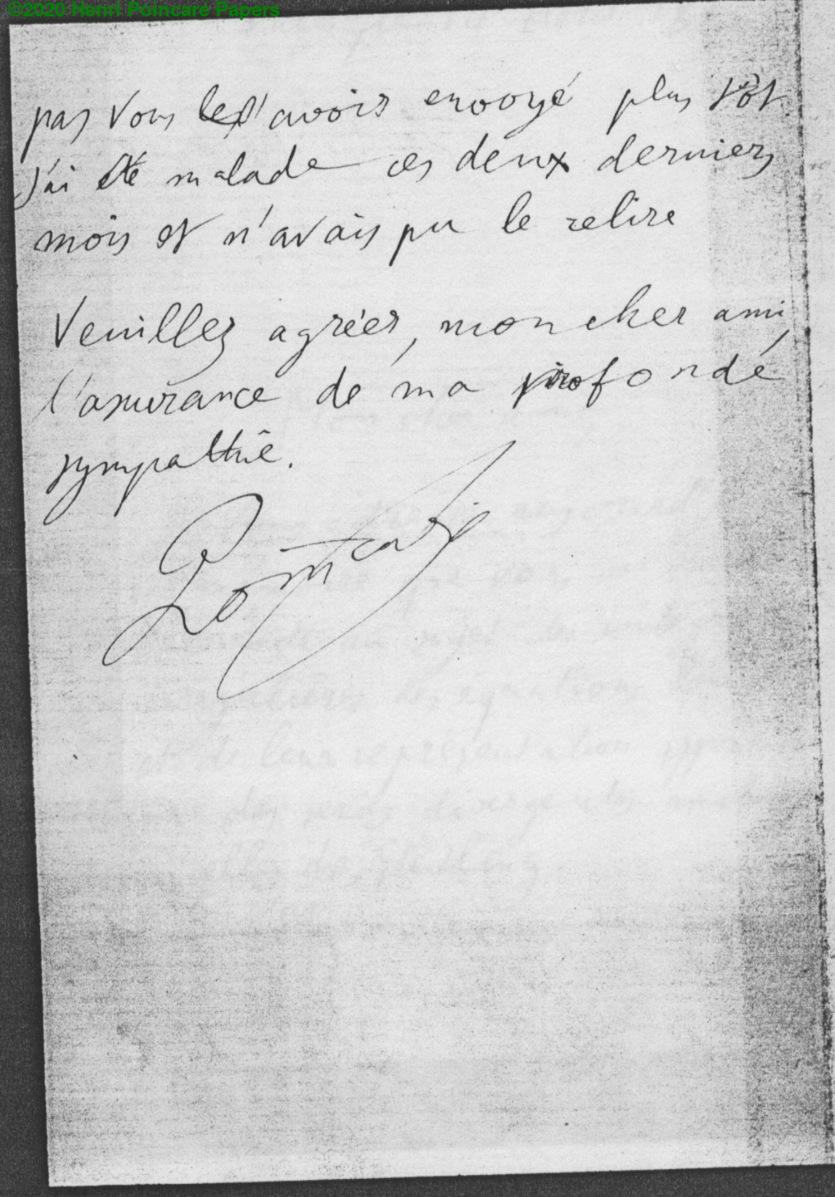 ©2020 Henri Poincaré Papers
pas vous l'avoir envoyé plus tôt
j'ai été malade ces deux derniers
mois et n'avais pu le relire
Veuillez agréer, mon cher ami,
l'assurance de ma profonde
sympathie.
Poincaré